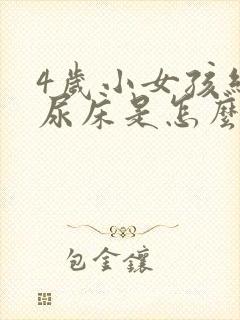 4歲小女孩經
尿床是怎麼
包金鑲